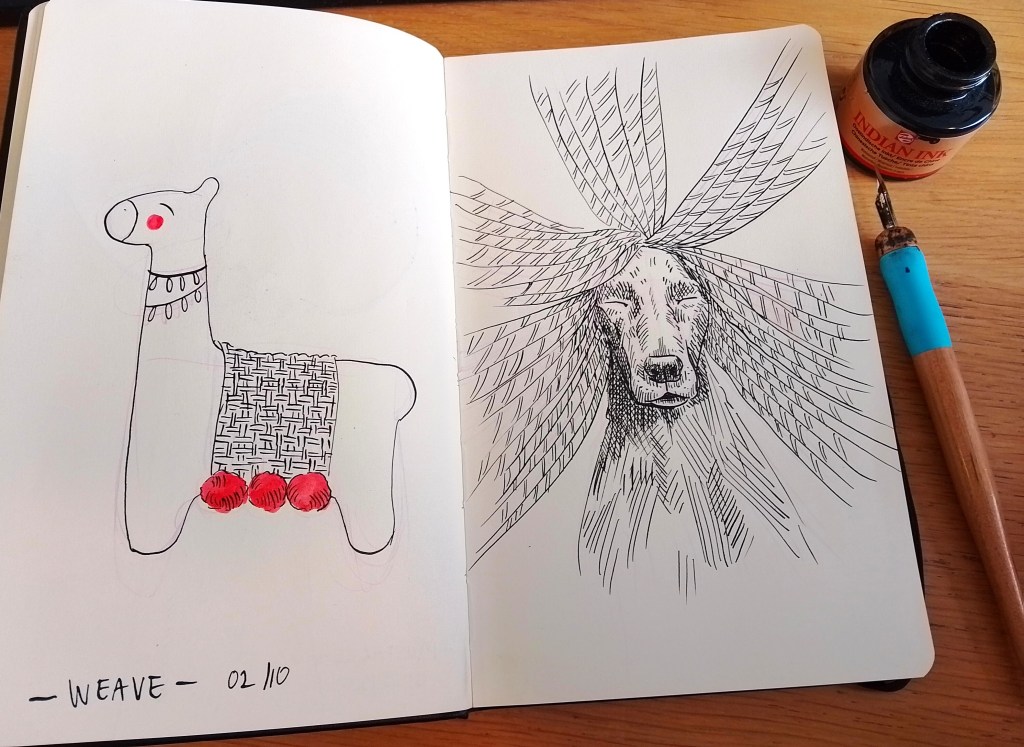 INDIAN INK
— WEAVE — 02/10